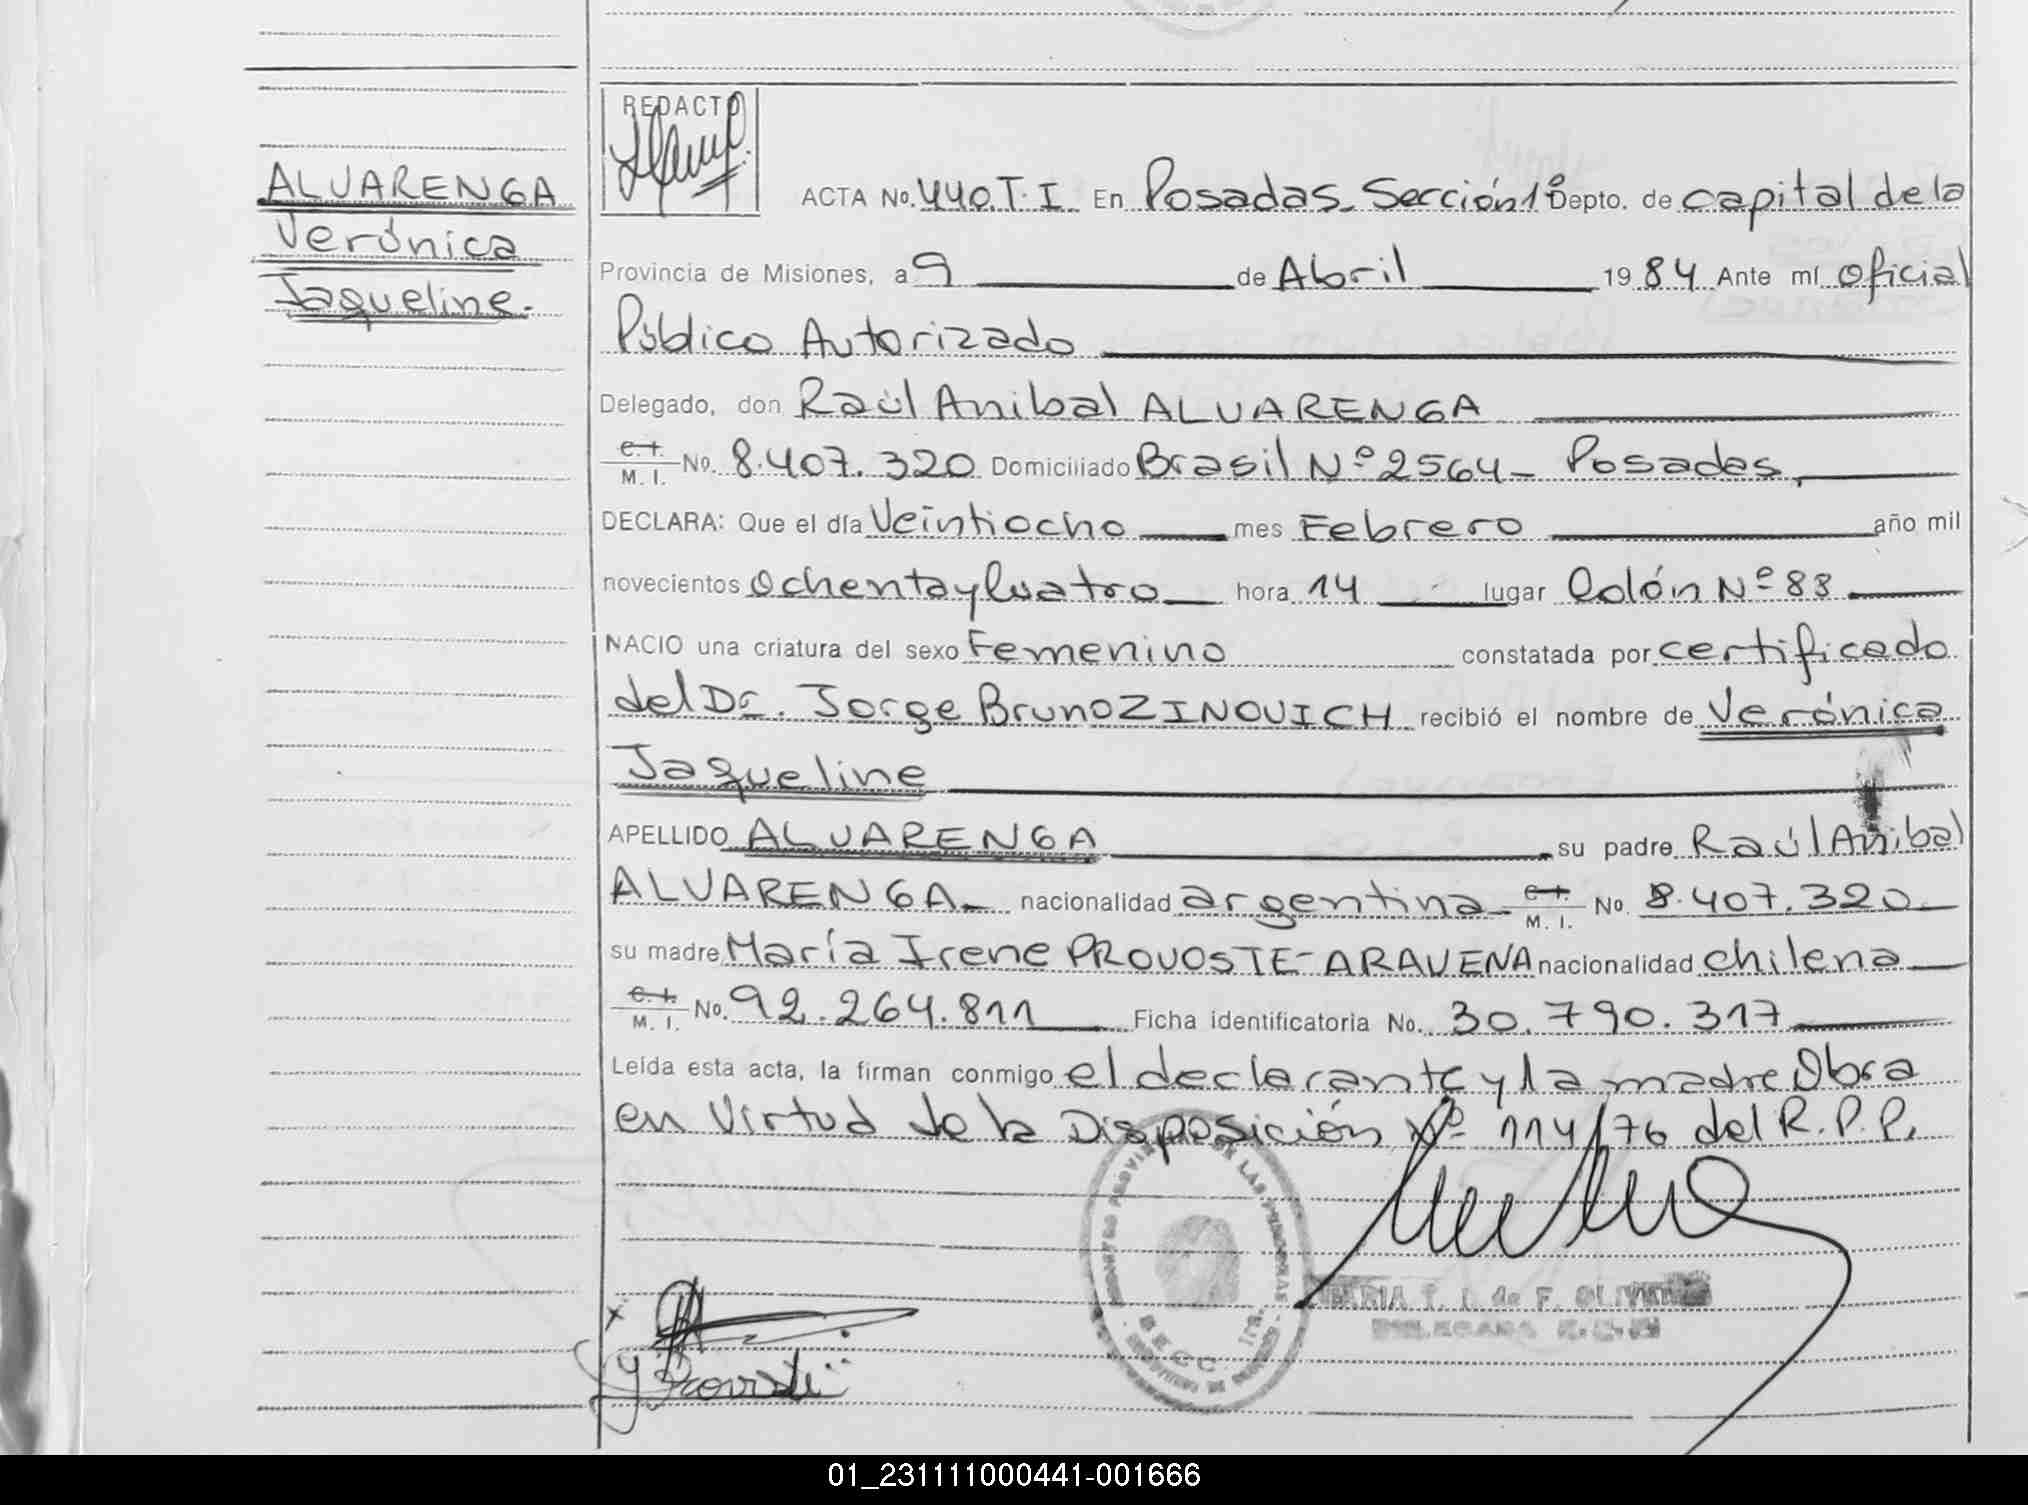 REDACTO
ALVARENGA
Verónica
Jaqueline.
ACTA No. 440.T.I En Posadas. Sección 1º Depto. de capital de la
Provincia de Misiones, a 9 de Abril 1984 Ante mí oficial
Público Autorizado
Delegado, don Raúl Anibal ALVARENGA
C.I. M. I. No. 8.407.320 Domiciliado Brasil Nº 2564 - Posadas,
DECLARA: Que el día Veintiocho mes Febrero año mil
novecientos Ochenta y Cuatro hora 14 lugar Colón Nº 88
NACIO una criatura del sexo Femenino constatada por certificado
del Dr. Jorge Bruno ZINOVICH recibió el nombre de Verónica
Jaqueline
APELLIDO ALVARENGA su padre Raúl Anibal
ALVARENGA nacionalidad argentina C.I. M. I. No. 8.407.320
su madre María Irene PROVOSTE-ARAVENA nacionalidad chilena
C.I. M. I. No. 92.264.811 Ficha identificatoria No. 30.790.317
Leída esta acta, la firman conmigo el declarante y la madre Obra
en Virtud de la Disposición Nº 114/76 del R.P.P.
DE LAS PERSONAS
MARIA T. de F.
01_231111000441-001666